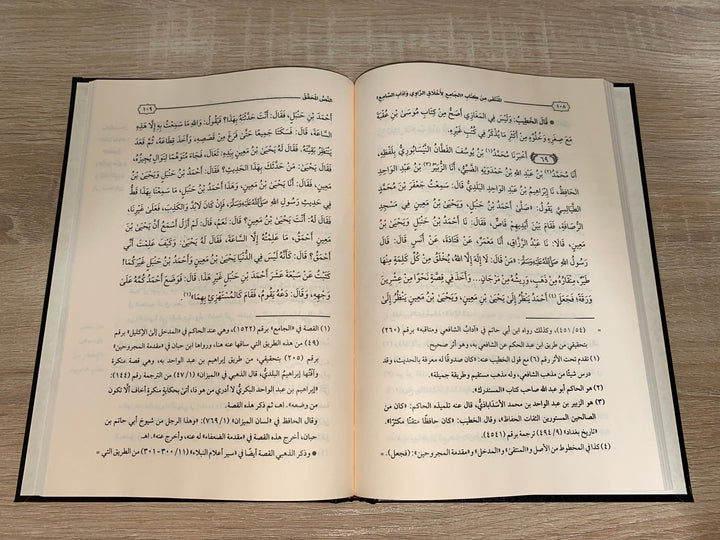 ١٠٨ المنتقى مِن كتاب «الجَامِع لِأخلاقِ الرَّاوِي وآدَابِ السَّامِع»
● قَالَ الخَطِيْبُ: وَلَيْسَ فِي المَغَازِي أَصَحُّ مِنْ كِتَابِ مُوسَىٰ بْنِ عُقْبَةَ
مَعَ صِغَرِهِ وَخُلُوِّهِ مِنْ أَكْثَرِ مَا يُذْكَرُ فِي كُتُبِ غَيْرِهِ.
٦٩ أَخْبَرَنَا مُحَمَّدُ(١) بْنُ يُوسُفَ القَطَّانُ النَّيْسَابُورِيُّ بِلَفْظِهِ،
أَنَا مُحَمَّدُ(٢) بْنُ عَبْدِ اللهِ بْنِ حَمْدَوَيْهِ الضَّبِّيُّ، أَنَا الزُّبَيْرُ(٣) بْنُ عَبْدِ الوَاحِدِ
الحَافِظُ، نَا إِبْرَاهِيمُ بْنُ عَبْدِ الوَاحِدِ البَلَدِيُّ قَالَ: سَمِعْتُ جَعْفَرَ بْنَ مُحَمَّدٍ
الطَّيَالِسِيَّ يَقُولُ: «صَلَّىٰ أَحْمَدُ بْنُ حَنْبَلٍ، وَيَحْيَىٰ بْنُ مَعِينٍ فِي مَسْجِدِ
الرُّصَافَةِ، فَقَامَ بَيْنَ أَيْدِيهِم قَاصٌّ، فَقَالَ: نَا أَحْمَدُ بْنُ حَنْبَلٍ وَيَحْيَىٰ بْنُ
مَعِينٍ، قَالَا: نَا عَبْدُ الرَّزَّاقِ، أَنَا مَعْمَرٌ، عَنْ قَتَادَةَ، عَنْ أَنَسٍ قَالَ: قَالَ
رَسُولُ اللهِ ﷺ: «مَنْ قَالَ: لَا إِلٰهَ إِلَّا اللهُ، يُخْلَقُ مِنْ كُلِّ كَلِمَةٍ مِنْهَا
طَيْرٌ، مِنْقَارُهُ مِنْ ذَهَبٍ، وَرِيشُهُ مِنْ مَرْجَانٍ... وَأَخَذَ فِي قِصَّةٍ نَحْوًا مِنْ عِشْرِينَ
وَرَقَةً؛ فَجَعَلَ(٤) أَحْمَدُ يَنْظُرُ إِلَىٰ يَحْيَىٰ بْنِ مَعِينٍ، وَيَحْيَىٰ بْنُ مَعِينٍ يَنْظُرُ إِلَىٰ
= (٤٥١/٥٤)، وكذلك رواه ابن أبي حاتم في «آداب الشافعي ومناقبه» برقم (٢٦٠)
بتحقيقي من طريق ابن عبد الحكم عن الشافعي به، وهو أثر صحيح.
(١) تقدم تحت الأثر رقم (٦) مع قول الخطيب عنه: كان صدوقًا له معرفة بالحديث، وقد
درس شيئًا من مذهب الشافعي، وله مذهب مستقيم وطريقة جميلة».
(٢) هو الحاكم أبو عبد الله صاحب كتاب «المستدرك».
(٣) هو الزبير بن عبد الواحد بن محمد الأسدَاباذيُّ، قال عنه تلميذه الحاكم: «كان من
الصالحين المستورين الثقات الحفاظ»، وقال الخطيب: «كان حافظًا متقنًا مكثرًا».
«تاريخ بغداد» (٤٩٤/٩) ترجمة برقم (٤٥٤١).
(٤) كذا في المخطوط من الأصل و«المنتقىٰ» و«المدخل» و«مقدمة المجروحين»: (فجعل). =
النَّصُّ المُحَقَّقُ ١٠٩
أَحْمَدَ بْنِ حَنْبَلٍ، فَقَالَ: أَنْتَ حَدَّثْتَهُ بِهَذَا؟ فَيَقُولُ: وَاللهِ مَا سَمِعْتُ بِهِ إِلَّا هَذِهِ
السَّاعَةَ، قَالَ: فَسَكَتَا جَمِيعًا حَتَّىٰ فَرَغَ مِنْ قَصَصِهِ، وَأَخَذَ قِطَاعَهُ، ثُمَّ قَعَدَ
يَنْتَظِرُ بَقِيَّتَهُ، فَقَالَ لَهُ يَحْيَىٰ بْنُ مَعِينٍ بِيَدِهِ: تَعَالَ، فَجَاءَ مُتَوَهِّمًا لِنَوَالٍ يُجِيزُهُ،
فَقَالَ لَهُ يَحْيَىٰ: مَنْ حَدَّثَكَ بِهَذَا الحَدِيثِ؟ فَقَالَ: أَحْمَدُ بْنُ حَنْبَلٍ وَيَحْيَىٰ بْنُ
مَعِينٍ، فَقَالَ: أَنَا يَحْيَىٰ بْنُ مَعِينٍ، وَهَذَا أَحْمَدُ بْنُ حَنْبَلٍ، مَا سَمِعْنَا بِهَذَا قَطُّ
فِي حَدِيثِ رَسُولِ اللهِ ﷺ، فَإِنْ كَانَ لَابُدَّ وَالكَذِبَ، فَعَلَىٰ غَيْرِنَا،
فَقَالَ لَهُ: أَنْتَ يَحْيَىٰ بْنُ مَعِينٍ؟ قَالَ: نَعَمْ، قَالَ: لَمْ أَزَلْ أَسْمَعُ أَنَّ يَحْيَىٰ بْنَ
مَعِينٍ أَحْمَقُ، مَا عَلِمْتُهُ إِلَّا السَّاعَةَ، فَقَالَ لَهُ يَحْيَىٰ: وَكَيْفَ عَلِمْتَ أَنِّي
أَحْمَقُ؟ قَالَ: كَأَنَّهُ لَيْسَ فِي الدُّنْيَا يَحْيَىٰ بْنُ مَعِينٍ، وَأَحْمَدُ بْنُ حَنْبَلٍ غَيْرَكُمَا!
كَتَبْتُ عَنْ سَبْعَةَ عَشَرَ أَحْمَدَ بْنِ حَنْبَلٍ غَيْرِ هَذَا، قَالَ: فَوَضَعَ أَحْمَدُ كُمَّهُ عَلَىٰ
وَجْهِهِ، وَقَالَ: دَعْهُ يَقُومُ، فَقَامَ كَالمُسْتَهْزِئِ بِهِمَا»(١).
(١) القصة في «الجامع» برقم (١٥٢٢)، وهي عند الحاكم في «المدخل إلى الإكليل» برقم
(٤٩) من هذه الطريق التي ساقها عنه هنا، ورواها ابن حبان في «مقدمة المجروحين»
برقم (٢٠٥) بتحقيقي، من طريق إبراهيم بن عبد الواحد به، وهي قصة منكرة
وآفتها إبراهيمُ البلديُّ، قال الذهبي في «الميزان» (٤٧/١) من الترجمة رقم (١٤٤):
«إبراهيم بن عبد الواحد البكريُّ لا أدري من هو ذا، أتىٰ بحكاية منكرة أخاف ألَّا تكون
من وضعه». اهـ، ثم ذكر هذه القصة.
وقال الحافظ في «لسان الميزان» (٧٦٩/١): «وهذا الرجل من شيوخ أبي حاتم بن
حبان، أخرج هذه القصة في «مقدمة الضعفاء» له عنه، وأخرج عنه». اهـ
● وذكر الذهبي القصة أيضًا في «سير أعلام النبلاء» (٣٠٠/١١-٣٠١) من الطريق التي =